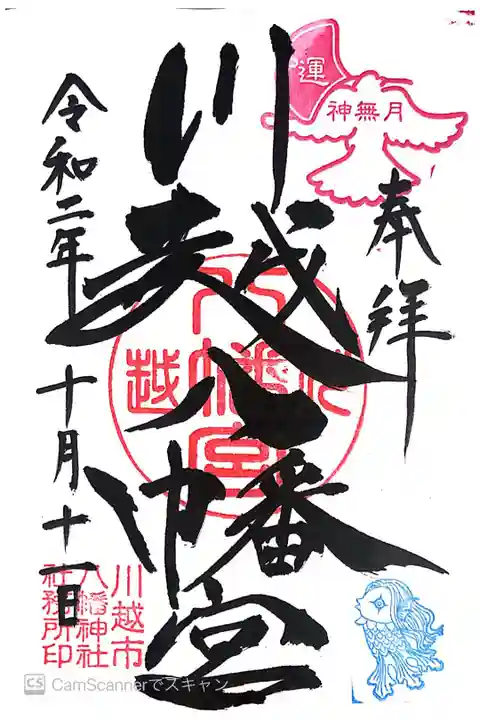 運
神無月
奉拝
川越八幡宮
川越
八幡宮
令和二年十月十一日
川越市
八幡神社
社務所印
CS CamScannerでスキャン